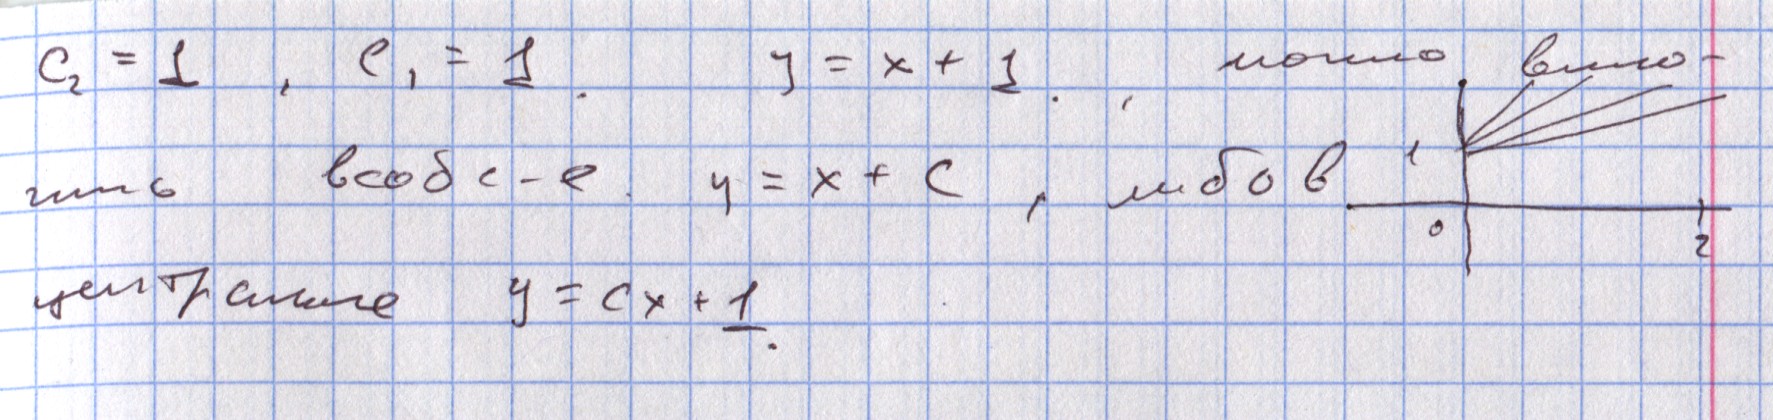 C₂ = 1 , C₁ = 1 . y = x + 1 . , можно вклю-
чить в соб с-е. y = x + C , либо в
центральное y = cx + 1 .
1
0
2